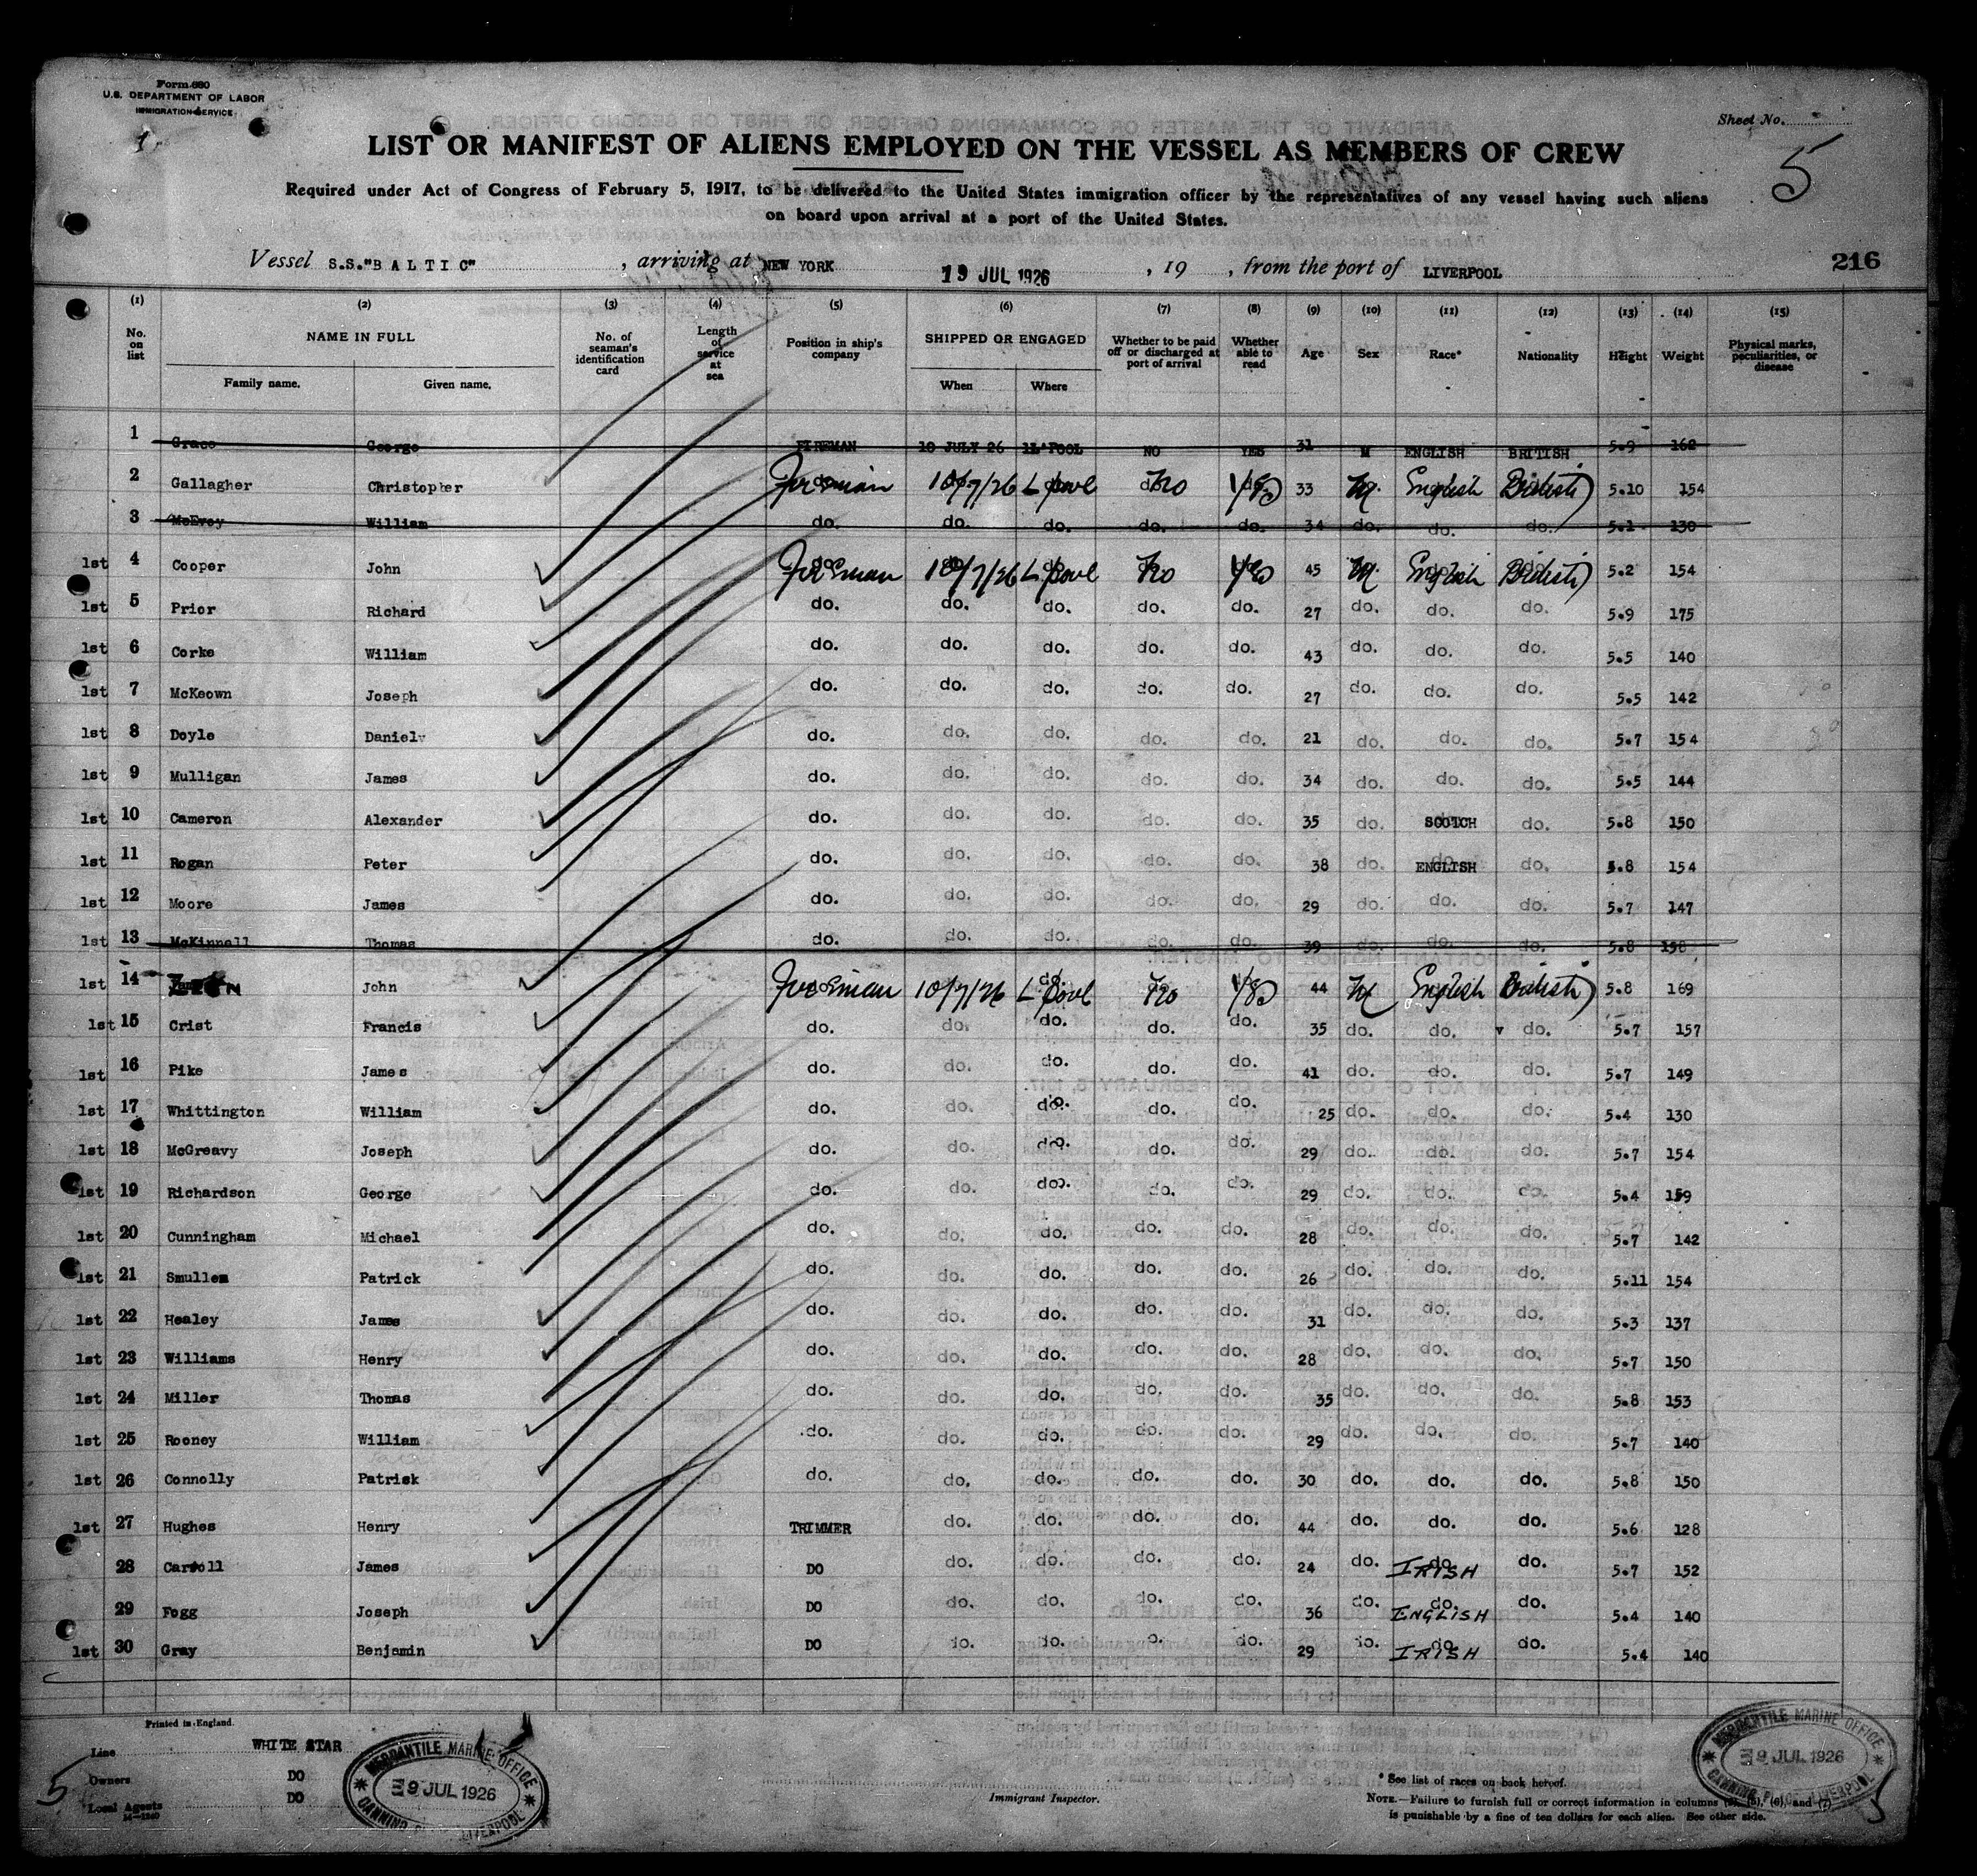 Form 680
U.S. DEPARTMENT OF LABOR
IMMIGRATION SERVICE
1
Sheet No.
5
LIST OR MANIFEST OF ALIENS EMPLOYED ON THE VESSEL AS MEMBERS OF CREW
Required under Act of Congress of February 5, 1917, to be delivered to the United States immigration officer by the representatives of any vessel having such aliens
on board upon arrival at a port of the United States.
Vessel S.S."BALTIC", arriving at NEW YORK 19 JUL 1926, 19 , from the port of LIVERPOOL
216
(1) (2) (3) (4) (5) (6) (7) (8) (9) (10) (11) (12) (13) (14) (15)
No. on list NAME IN FULL Family name. Given name. No. of seaman's identification card Length of service at sea Position in ship's company SHIPPED OR ENGAGED When Where Whether to be paid off or discharged at port of arrival Whether able to read Age Sex Race* Nationality Height Weight Physical marks, peculiarities, or disease
1 Grace George FIREMAN 10 JULY 26 L'POOL NO YES 31 M ENGLISH BRITISH 5.9 162
2 Gallagher Christopher Fireman 10/7/26 L'pool No Yes 33 M. English British 5.10 154
3 McEvoy William do. do. do. do. do. 34 do. do. do. 5.1 130
1st 4 Cooper John Fireman 10/7/26 L'pool No Yes 45 M. English British 5.2 154
1st 5 Prior Richard do. do. do. do. do. 27 do. do. do. 5.9 175
1st 6 Corke William do. do. do. do. do. 43 do. do. do. 5.5 140
1st 7 McKeown Joseph do. do. do. do. do. 27 do. do. do. 5.5 142
1st 8 Doyle Daniel do. do. do. do. do. 21 do. do. do. 5.7 154
1st 9 Mulligan James do. do. do. do. do. 34 do. do. do. 5.5 144
1st 10 Cameron Alexander do. do. do. do. do. 35 do. SCOTCH do. 5.8 150
1st 11 Rogan Peter do. do. do. do. do. 38 do. ENGLISH do. 5.8 154
1st 12 Moore James do. do. do. do. do. 29 do. do. do. 5.7 147
1st 13 McKinnell Thomas do. do. do. do. do. 39 do. do. do. 5.8 158
1st 14 John Fireman 10/7/26 L'pool No Yes 44 M English British 5.8 169
1st 15 Crist Francis do. do. do. do. do. 35 do. do. do. 5.7 157
1st 16 Pike James do. do. do. do. do. 41 do. do. do. 5.7 149
1st 17 Whittington William do. do. do. do. do. 25 do. do. do. 5.4 130
1st 18 McGreavy Joseph do. do. do. do. do. 29 do. do. do. 5.7 154
1st 19 Richardson George do. do. do. do. do. 29 do. do. do. 5.4 159
1st 20 Cunningham Michael do. do. do. do. do. 28 do. do. do. 5.7 142
1st 21 Smullen Patrick do. do. do. do. do. 26 do. do. do. 5.11 154
1st 22 Healey James do. do. do. do. do. 31 do. do. do. 5.3 137
1st 23 Williams Henry do. do. do. do. do. 28 do. do. do. 5.7 150
1st 24 Miller Thomas do. do. do. do. do. 35 do. do. do. 5.8 153
1st 25 Rooney William do. do. do. do. do. 29 do. do. do. 5.7 140
1st 26 Connolly Patrick do. do. do. do. do. 30 do. do. do. 5.8 150
1st 27 Hughes Henry TRIMMER do. do. do. do. 44 do. do. do. 5.6 128
28 Carroll James DO do. do. do. do. 24 do. IRISH do. 5.7 152
29 Fogg Joseph DO do. do. do. do. 36 do. ENGLISH do. 5.4 140
1st 30 Gray Benjamin DO do. do. do. do. 29 do. IRISH do. 5.4 140
Printed in England.
Line WHITE STAR
Owners DO
Local Agents DO
14-1240
5
MERCANTILE MARINE OFFICE
9 JUL 1926
CANNING PLACE LIVERPOOL
Immigrant Inspector.
* See list of races on back hereof.
NOTE.—Failure to furnish full or correct information in columns (2), (5), (6), and (7)
is punishable by a fine of ten dollars for each alien. See other side.
MERCANTILE MARINE OFFICE
9 JUL 1926
CANNING PLACE LIVERPOOL